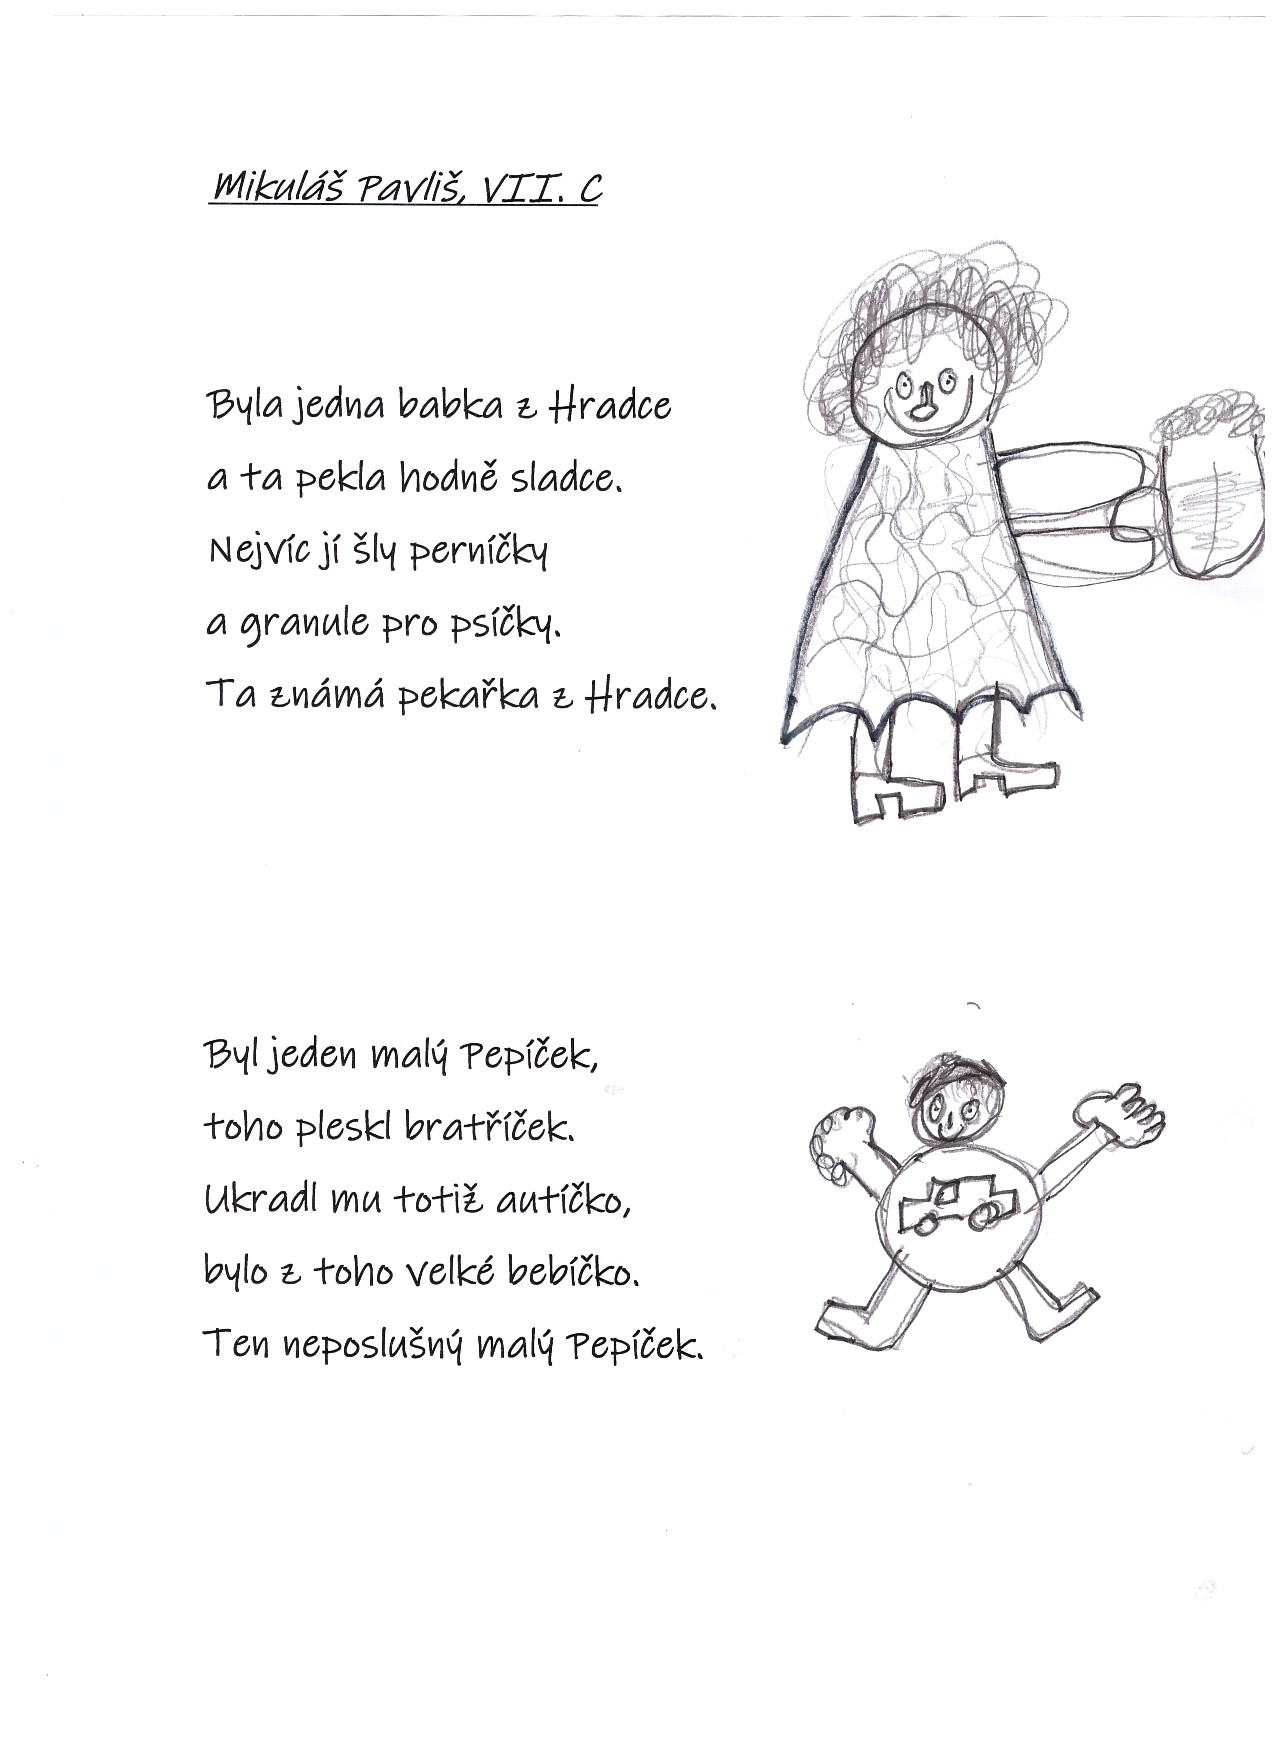 Mikuláš Pavliš, VII. C
Byla jedna babka z Hradce
a ta pekla hodně sladce.
Nejvíc jí šly perníčky
a granule pro psíčky.
Ta známá pekařka z Hradce.
Byl jeden malý Pepíček,
toho pleskl bratříček.
Ukradl mu totiž autíčko,
bylo z toho velké bebíčko.
Ten neposlušný malý Pepíček.